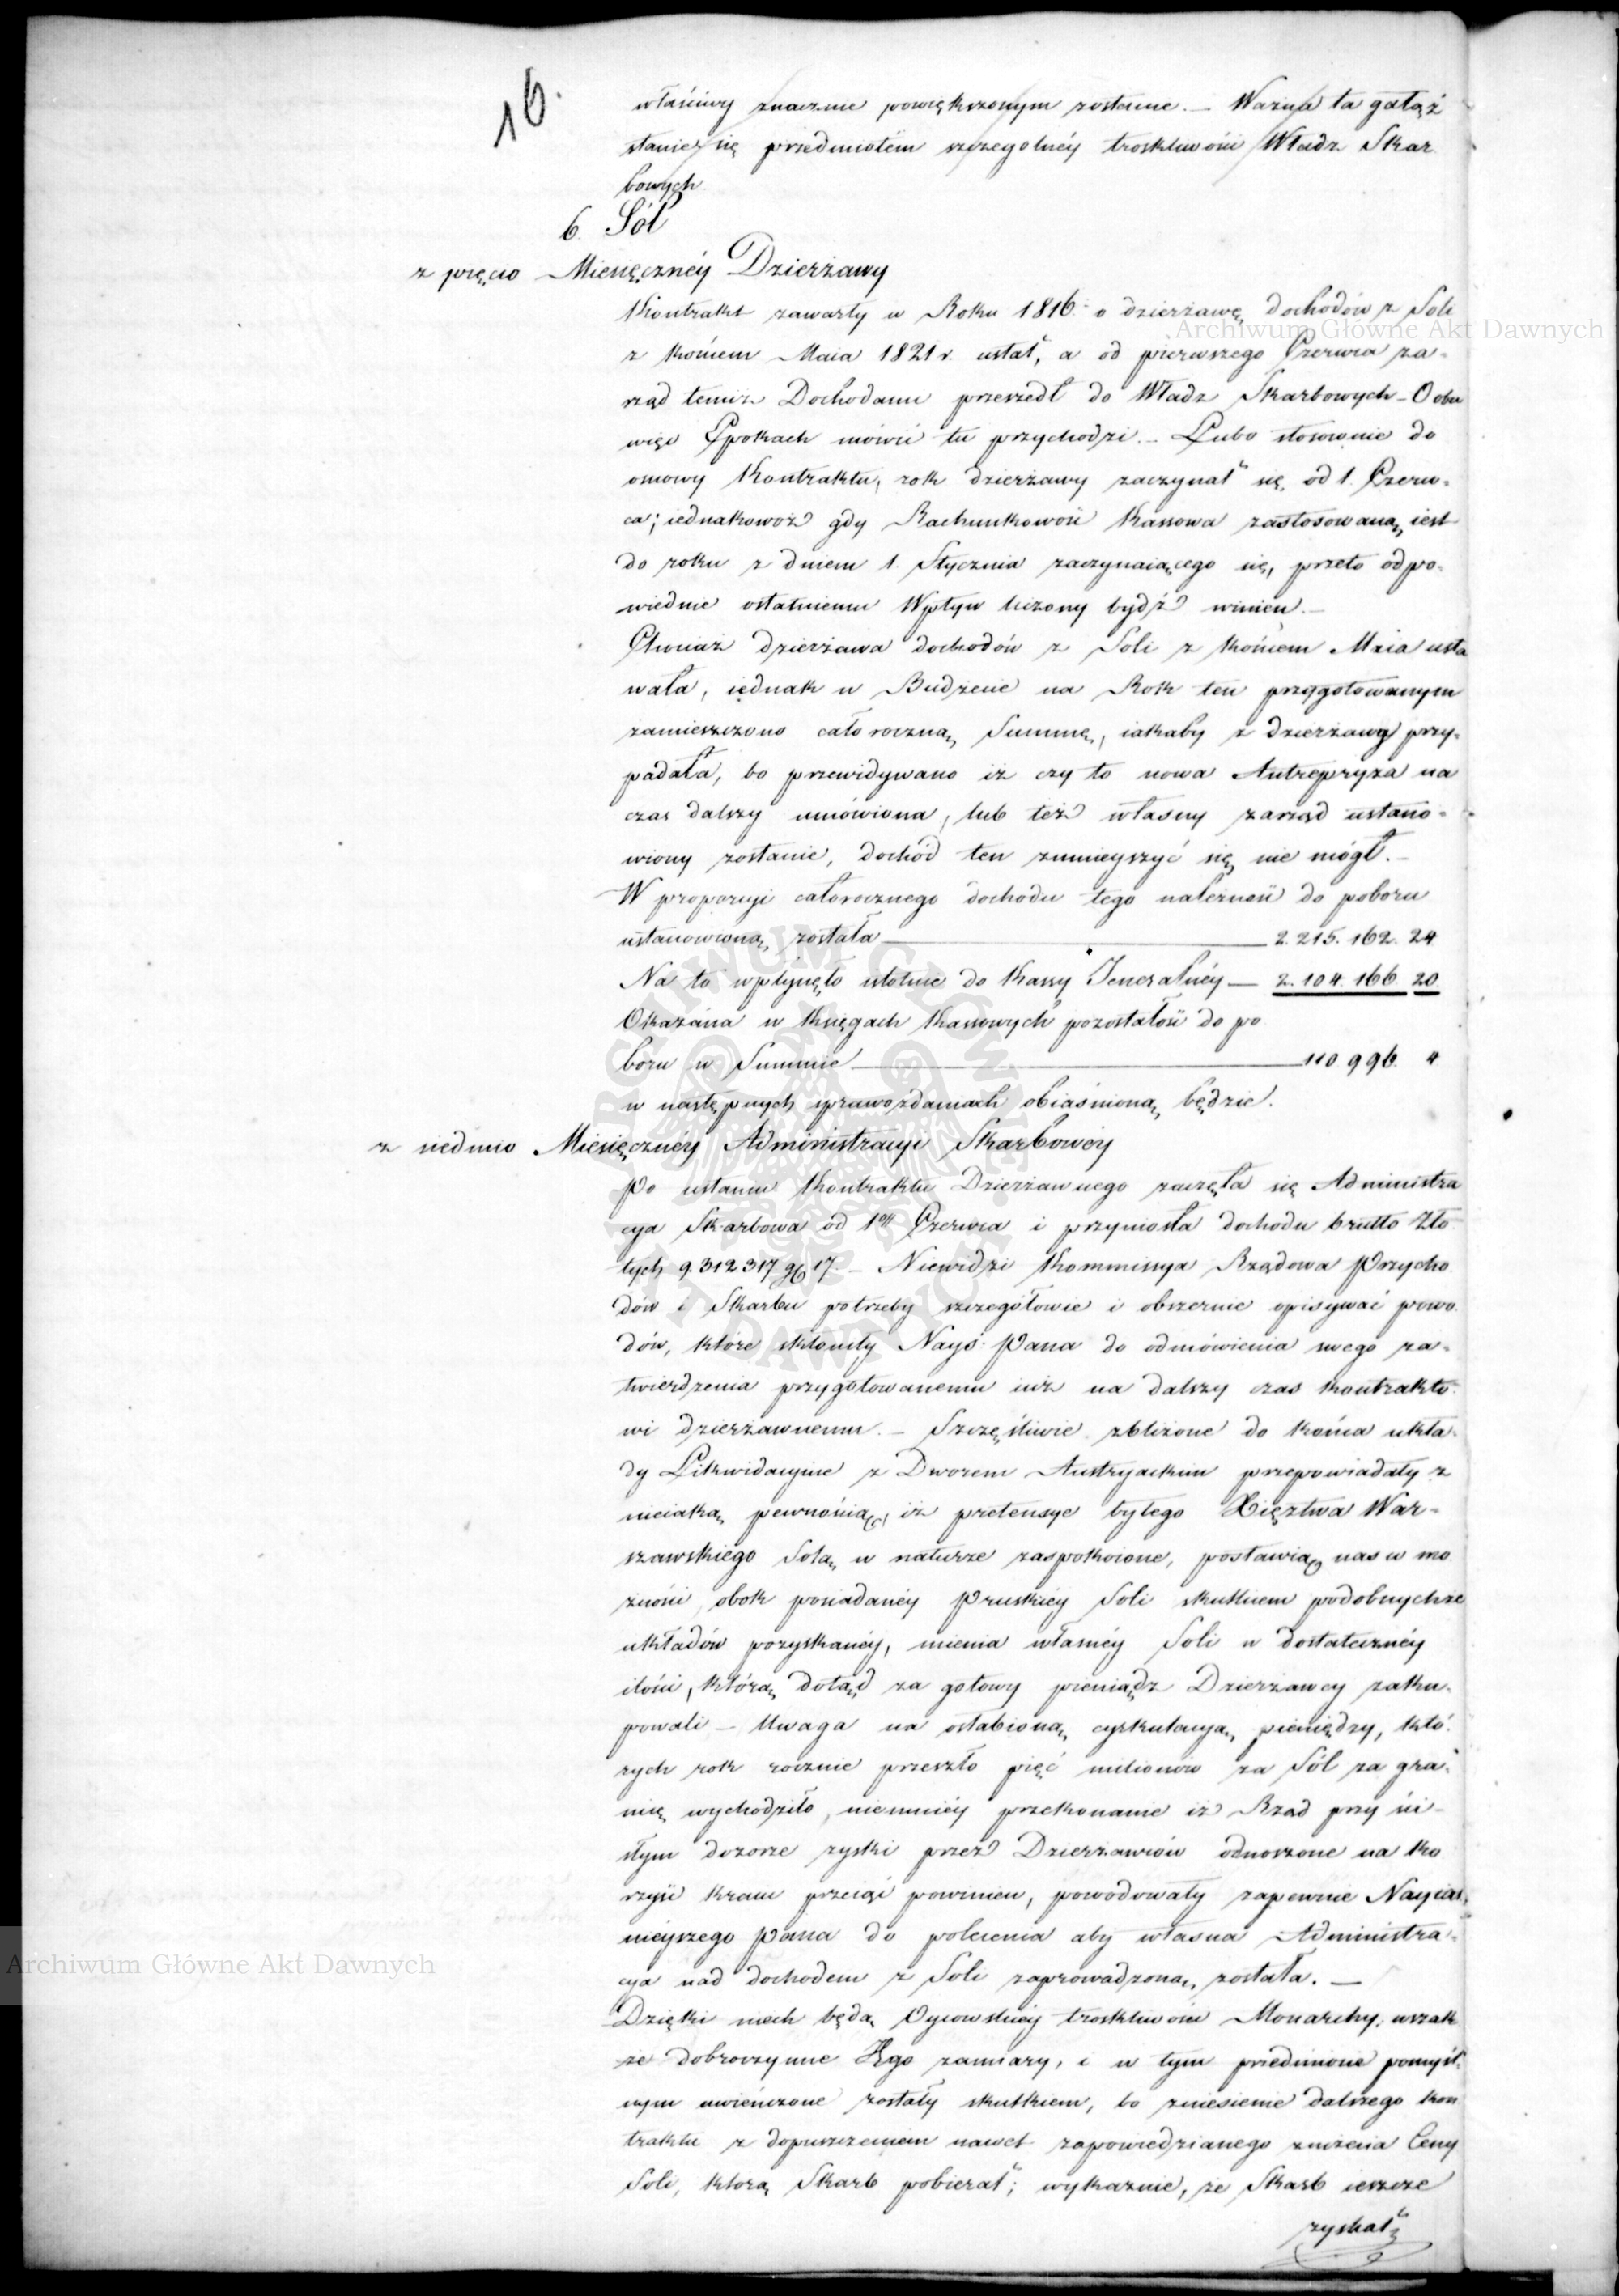 16.
właściwy znacznie powiększonym zostanie. — Ważna ta gałąź
stanie się przedmiotem szczegolnéy troskliwości Władz Skar
bowych.
6. Sól
z pięcio Miesięcznéy Dzierżawy
Kontrakt zawarty w Roku 1816. o dzierżawę dochodów z Soli
z końcem Maia 1821 r. ustał, a od pierwszego Czerwca za-
rząd temiż Dochodami przeszedł do Władz Skarbowych — O obu
więc Epokach mówić tu przychodzi. — Lubo stosownie do
osnowy Kontraktu, rok dzierżawy zaczynał się od 1. Czerw-
ca; iednakowoż gdy Rachunkowość Kassowa zastosowaną iest
do roku z dniem 1. Stycznia zaczynaiącego się, przeto odpo-
wiednie ostatniemu Wpływ liczony bydź winien. —
Chociaż dzierżawa dochodów z Soli z końcem Maia usta
wała, iednak w Budżecie na Rok ten przygotowanym
zamieszczono całoroczną Summę, iakaby z dzierżawy przy-
padała, bo przewidywano iż czy to nowa Antrepryza na
czas dalszy umówiona, lub też własny zarząd ustano-
wiony zostanie, dochód ten zmnieyszyć się nie mógł. —
W proporcyi całorocznego dochodu tego należność do poboru
ustanowioną została — 2. 215. 162. 24
Na to wpłynęło istotnie do Kassy Jeneralnéy — 2. 104. 166 20
Okazana w Księgach Kassowych pozostałość do po
boru w Summie — 110 996. 4
w następnych sprawozdaniach obiaśnioną będzie.
z siedmio Miesięcznéy Administracyi Skarbowéy
Po ustaniu Kontraktu Dzierżawnego zaczęła się Administra
cya Skarbowa od 1go Czerwca i przyniosła dochodu brutto Zło
tych 9. 312 317 gr 17. — Niewidzi Kommissya Rządowa Przycho
dów i Skarbu potrzeby szczegółowie i obszernie opisywać powo
dów, które skłoniły Nayś. Pana do odmówienia swego za-
twierdzenia przygotowanemu iuż na dalszy czas kontrakto
wi dzierżawnemu. — Szczęśliwie zbliżone do końca ukła-
dy Likwidacyine z Dworem Austryackim przepowiadały z
nieiaką pewnością, iż pretensye byłego Xięztwa War-
szawskiego Solą w naturze zaspokoione, postawią nas w mo
żności, obok posiadanéy Pruskiéy Soli skutkiem podobnychże
układów pozyskanéy, mienia własnéy Soli w dostatecznéy
ilości, którą dotąd za gotowy pieniądz Dzierżawcy zaku-
powali — Uwaga na osłabioną cyrkulacyą pieniędzy, któ-
rych rok rocznie przeszło pięć milionów za Sól za gra-
nicę wychodziło, niemniéy przekonanie iż Rząd przy ści-
słym dozorze zyski przez Dzierżawców odnoszone na ko
rzyść kraiu przeiąć powinien, powodowały zapewnie Nayiaś-
nieyszego Pana do polecenia aby własna Administra-
cya nad dochodem z Soli zaprowadzoną została. —
Dzięki niech będą Oycowskiéy troskliwości Monarchy, wszak
że dobroczynne Jego zamiary, i w tym przedmiocie pomyśl-
nym uwieńczone zostały skutkiem, bo zniesienie dalszego kon
traktu z dopuszczeniem nawet zapowiedzianego zniżenia Ceny
Soli, którą Skarb pobierał; wykażnie, że Skarb ieszcze
zyskał
Archiwum Główne Akt Dawnych
Archiwum Główne Akt Dawnych
ARCHIWUM GŁÓWNE AKT DAWNYCH